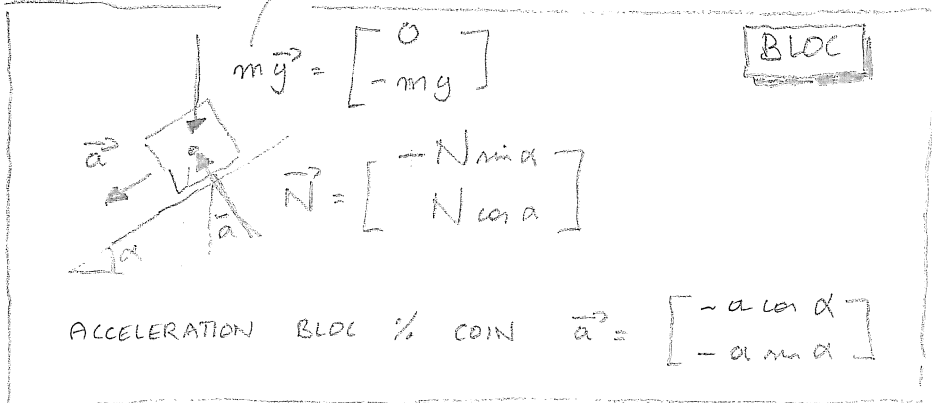 BLOC
m g⃗ = [ 0
-mg ]
a⃗
N⃗ = [ -N sin α
N cos α ]
α
α
ACCELERATION BLOC % COIN a⃗ = [ -a cos α
- a sin α ]